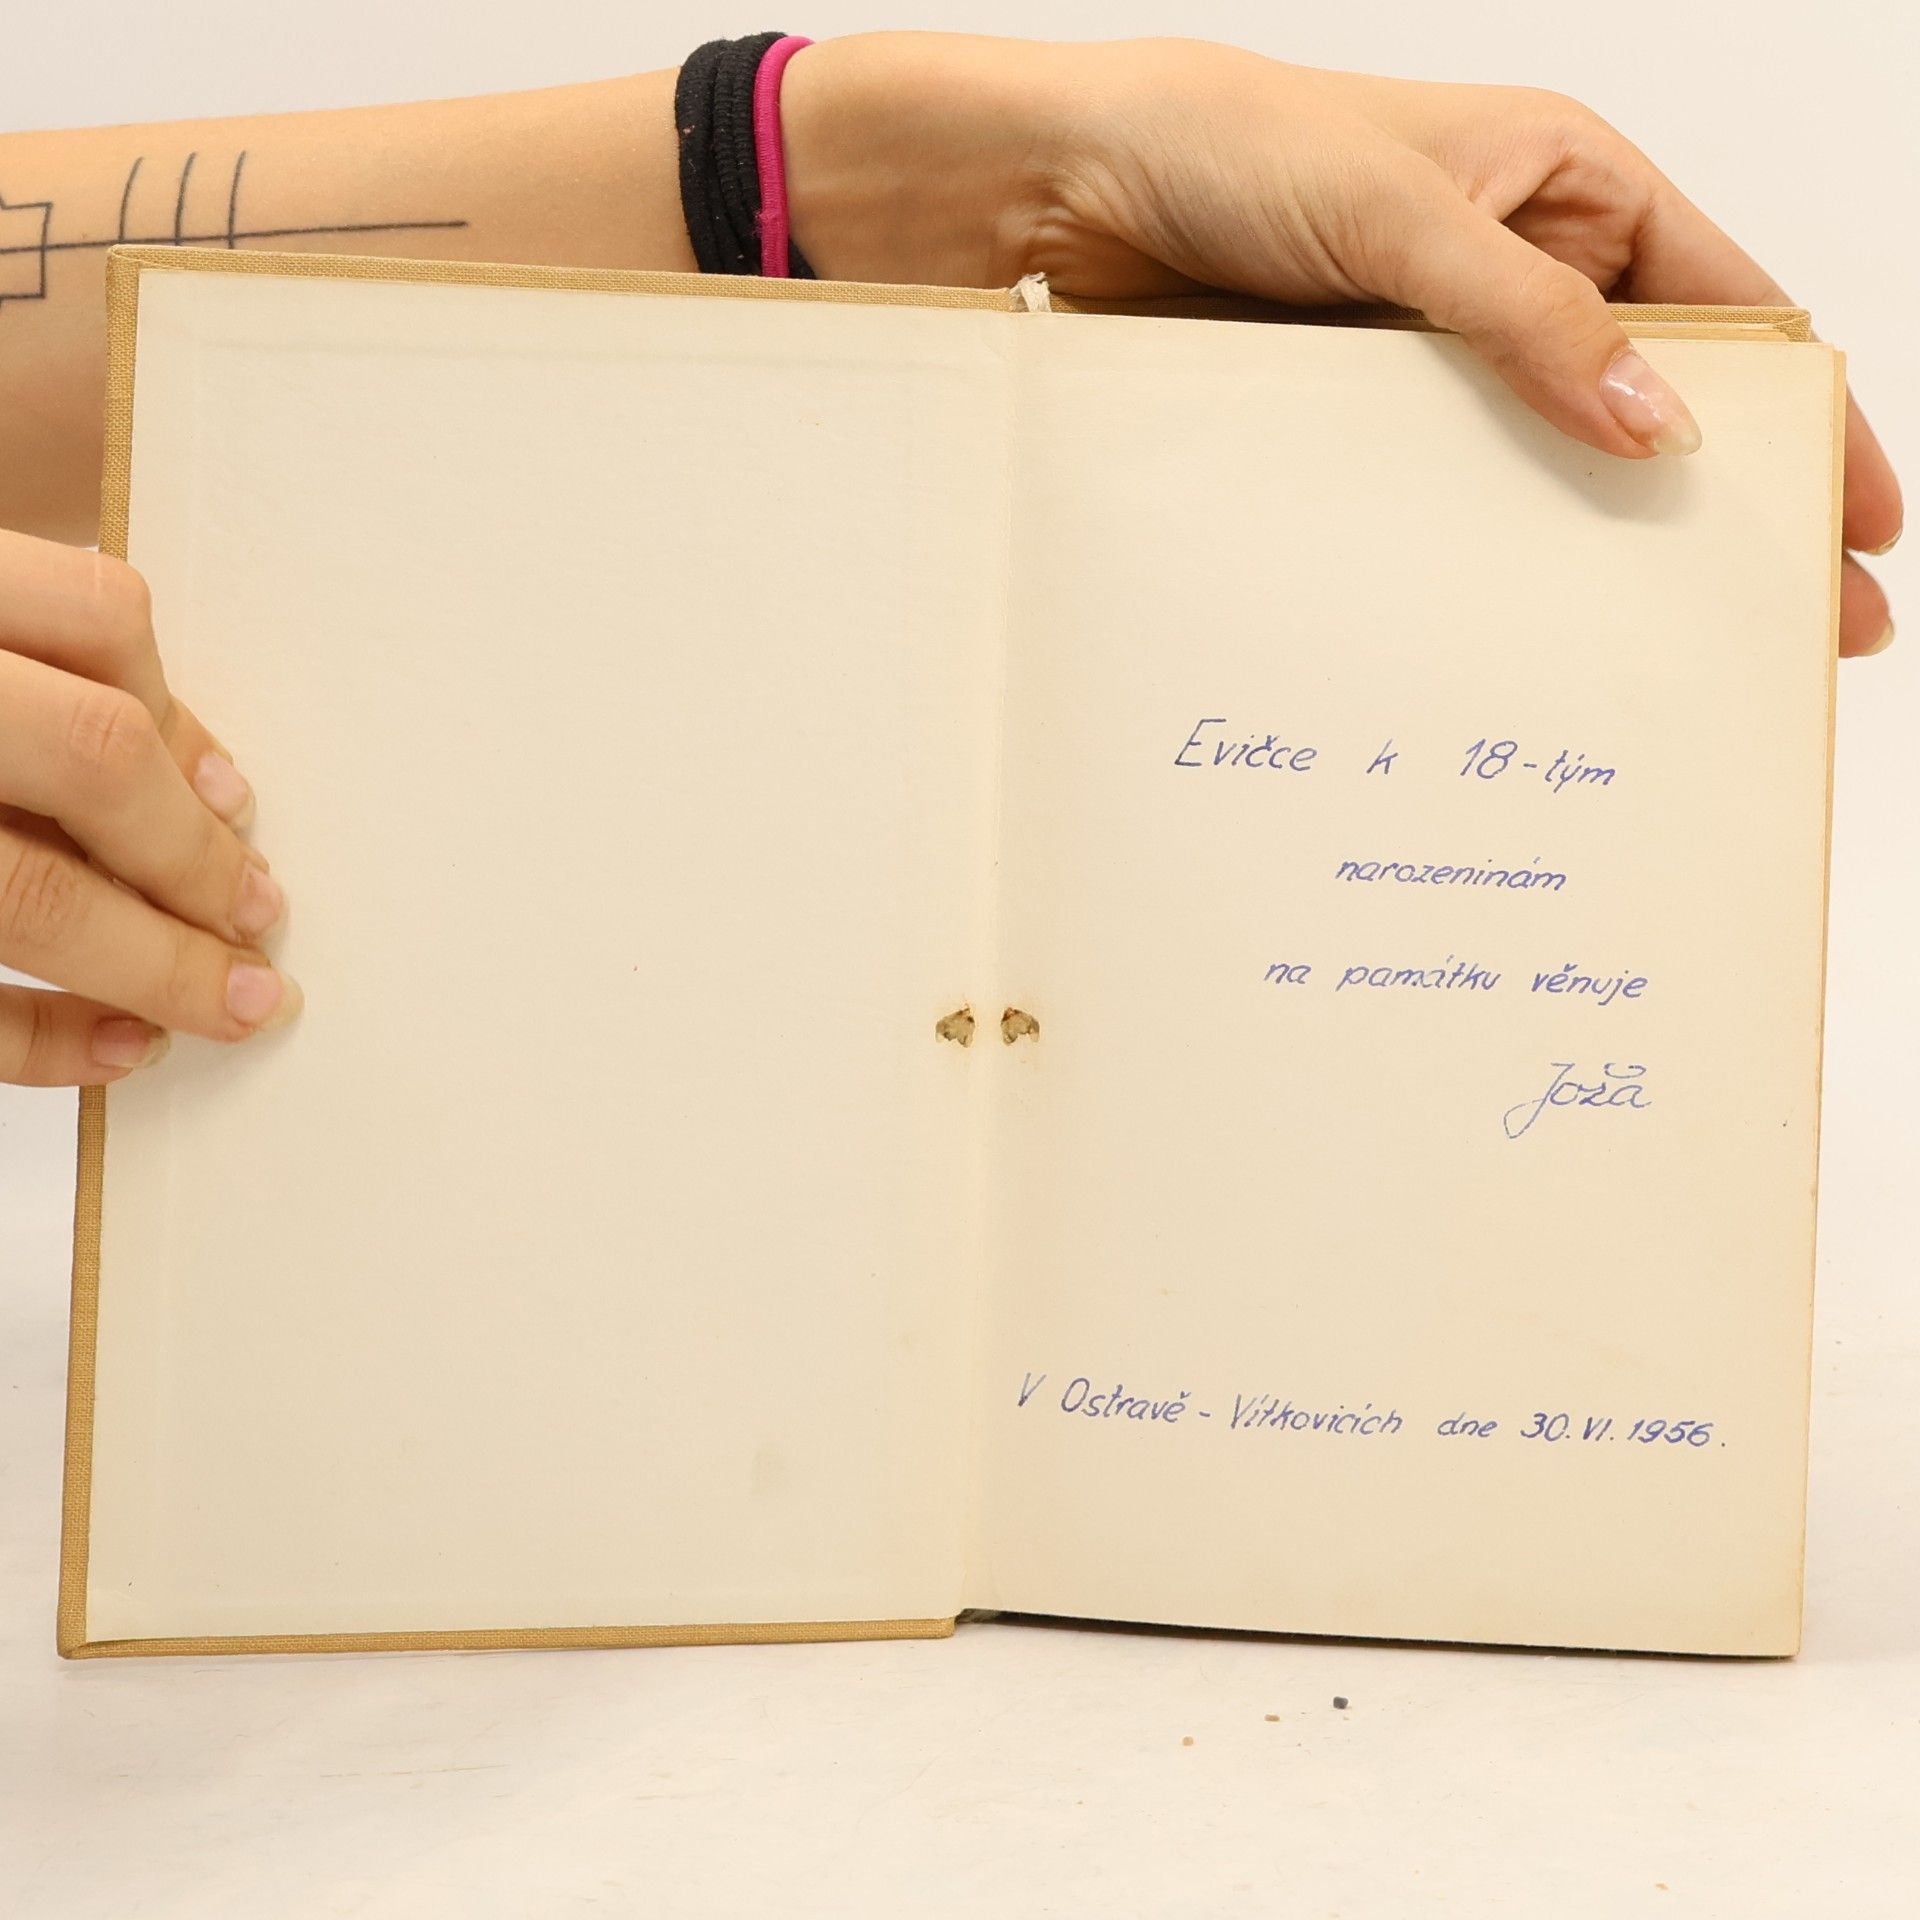 Evičce k 18-tým
narozeninám
na památku věnuje
Joža
V Ostravě - Vítkovicích dne 30. VI. 1956.